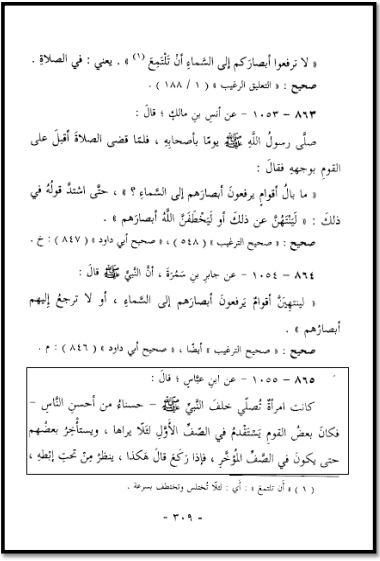 « لا ترفعوا أبصارَكم إلى السَّماءِ أنْ تَلْتَمِعَ (١) » . يعني : في الصلاةِ .
صحيح : « التعليق الرغيب » ( ١ / ١٨٨ ) .
٨٦٣ - ١٠٥٣ - عن أنسِ بنِ مالكٍ ؛ قالَ :
صلَّى رسولُ اللَّهِ ﷺ يومًا بأصحابِهِ ، فلمَّا قضى الصلاةَ أقبلَ على
القومِ بوجههِ فقالَ :
« ما بالُ أقوامٍ يرفعونَ أبصارَهم إلى السَّماءِ ؟ » ، حتَّى اشتدَّ قولُهُ في
ذلكَ : « لَيَنْتَهُنَّ عن ذلكَ أو لَيَخْطَفَنَّ اللَّهُ أبصارَهم » .
صحيح : « صحيح الترغيب » ( ٥٤٨ ) ، « صحيح أبي داود » ( ٨٤٧ ) : خ .
٨٦٤ - ١٠٥٤ - عن جابرِ بنِ سَمُرَةَ ، أنَّ النبيَّ ﷺ قالَ :
« لينتهينَّ أقوامٌ يَرفعونَ أبصارَهم إلى السَّماءِ ، أو لا ترجعُ إليهم
أبصارُهم » .
صحيح : « صحيح الترغيب » أيضًا ، « صحيح أبي داود » ( ٨٤٦ ) : م .
٨٦٥ - ١٠٥٥ - عن ابنِ عبَّاسٍ ؛ قالَ :
كانت امرأةٌ تُصلِّي خلفَ النبيِّ ﷺ - حسناءُ من أحسنِ النَّاسِ -
فكانَ بعضُ القومِ يَسْتَقْدمُ في الصَّفِّ الأوَّلِ لئلَّا يراها ، ويستأْخِرُ بعضُهم
حتى يكونَ في الصَّفِّ المُؤخَّرِ ، فإذا رَكعَ قالَ هَكذا ، ينظرُ مِنْ تحتِ إبْطهِ ،
( ١ ) « أن تلتمعَ » : أي : لئلَّا تُختلس وتختطف بسرعة .
- ٣٠٩ -